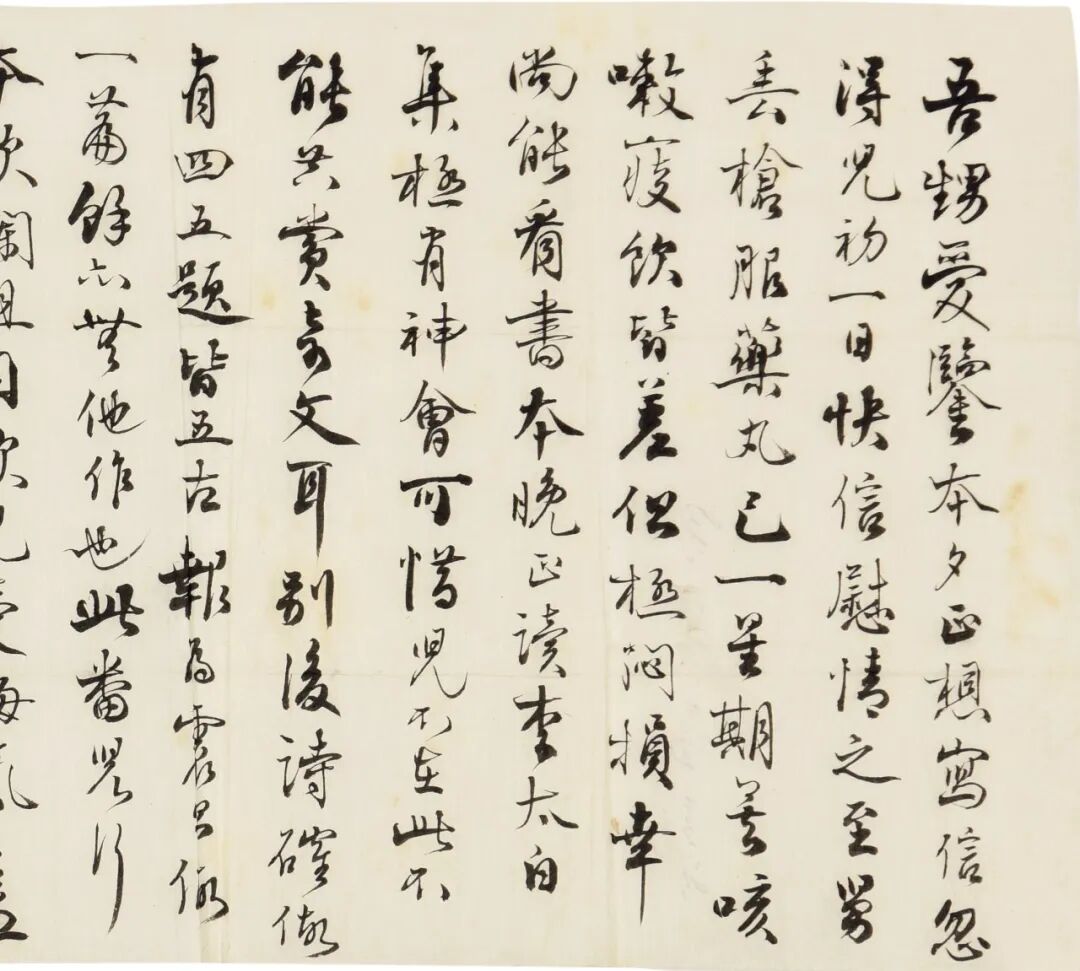 吾甥愛鑒本夕正想寫信忽
得児初一日快信慰情之至舅
丟槍服藥丸已一星期咳
嗽痰飲皆差但極悶損幸
尚能看書本晚正讀李太白
集極有神會可惜児不在此不
能共賞奇文耳別後詩確做
有四五題皆五古報為做
一篇餘亦無他作也此番児行
本欲